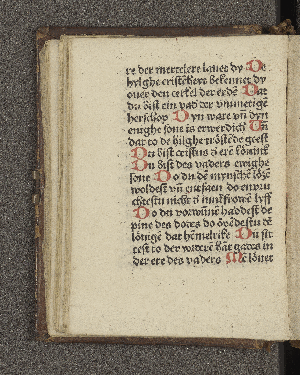 re der mertelere lauet dy De
hylghe cristēheyt bekennet dy
ouer den cirkel der erdē Dat
du bist ein vad der vnmetigē
herschop Dyn ware vn̄ dyn
enighe sone is erwerdich Vn̄
dar to de hilghe trōster de geest
Du bist cristus ē erē konīnc
Du bist des vaders ewighe
sone Do du dē mynschē lōzē
woldest vn̄ entfaen do en vru
chtestu nicht d iunkfrowē lyff
Do du vorwūnē haddest de
pine des dodes do
löuigē dat hēmelrike Du sit
test to der vorderē hāt gades in
der ere des vaders Mē löuet